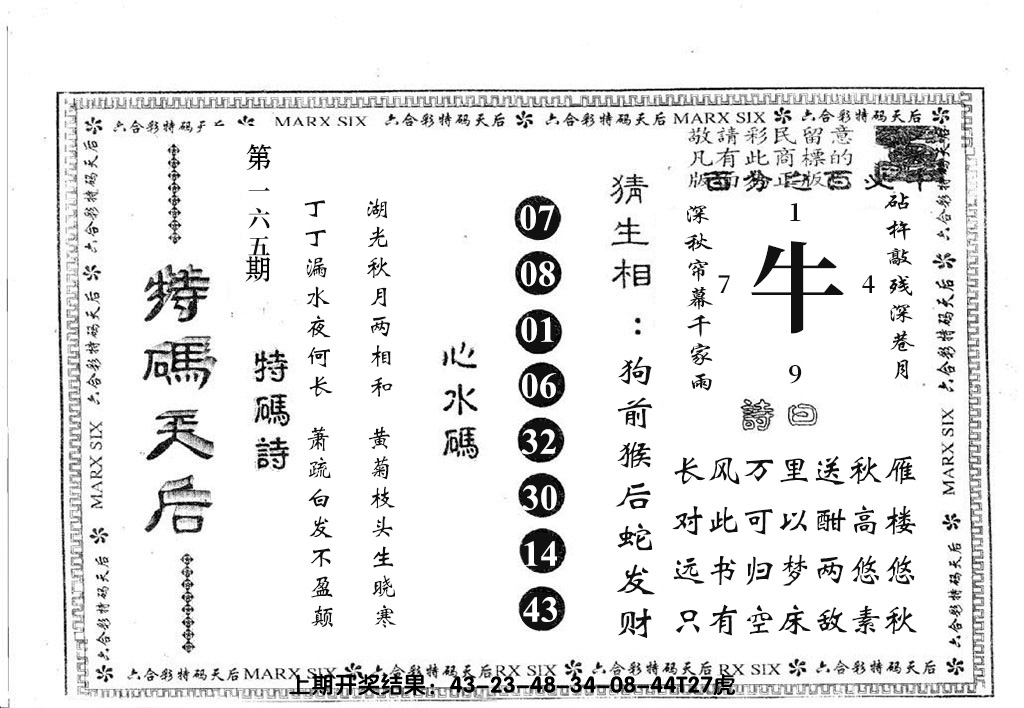 六合彩特码天后 MARX SIX 六合彩特码天后 六合彩特码天后 MARX SIX 六合彩特码天后
敬請彩民留意
凡有此商標的
版面
正版
砧杵敲残深巷月
深秋帘幕千家雨
1
7
牛
4
9
詩曰
长风万里送秋雁
对此可以酣高楼
远书归梦两悠悠
只有空床敌素秋
猜生相：狗前猴后蛇发财
07
08
01
06
32
30
14
43
心水碼
湖光秋月两相和 黄菊枝头生晓寒
丁丁漏水夜何长 萧疏白发不盈颠
特碼詩
第一六五期
特碼天后
六合彩特码天后 六合彩特码天后 MARX SIX 六合彩特码天后
六合彩特码天后 六合彩特码天后 MARX SIX 六合彩特码天后
六合彩特码天后 MARX SIX 六合彩特码天后 RX SIX 六合彩特码天后 RX SIX 六合彩特码天后
上期开奖结果：43-23-48-34-08-44T27虎